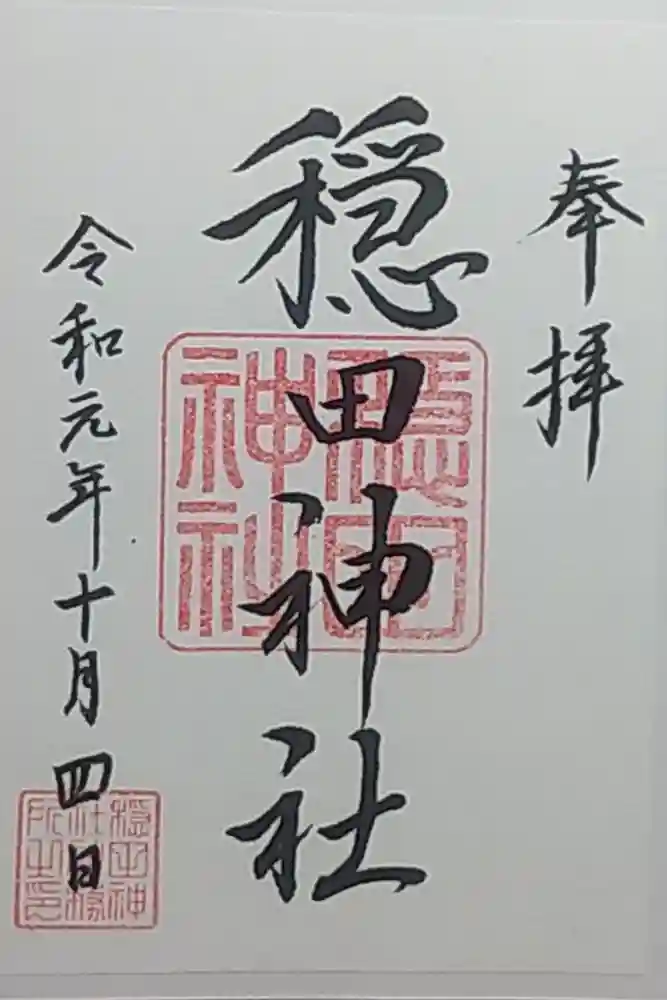 奉拝
穏田神社
令和元年十月四日
穏田神社
穏田神社社務所之印